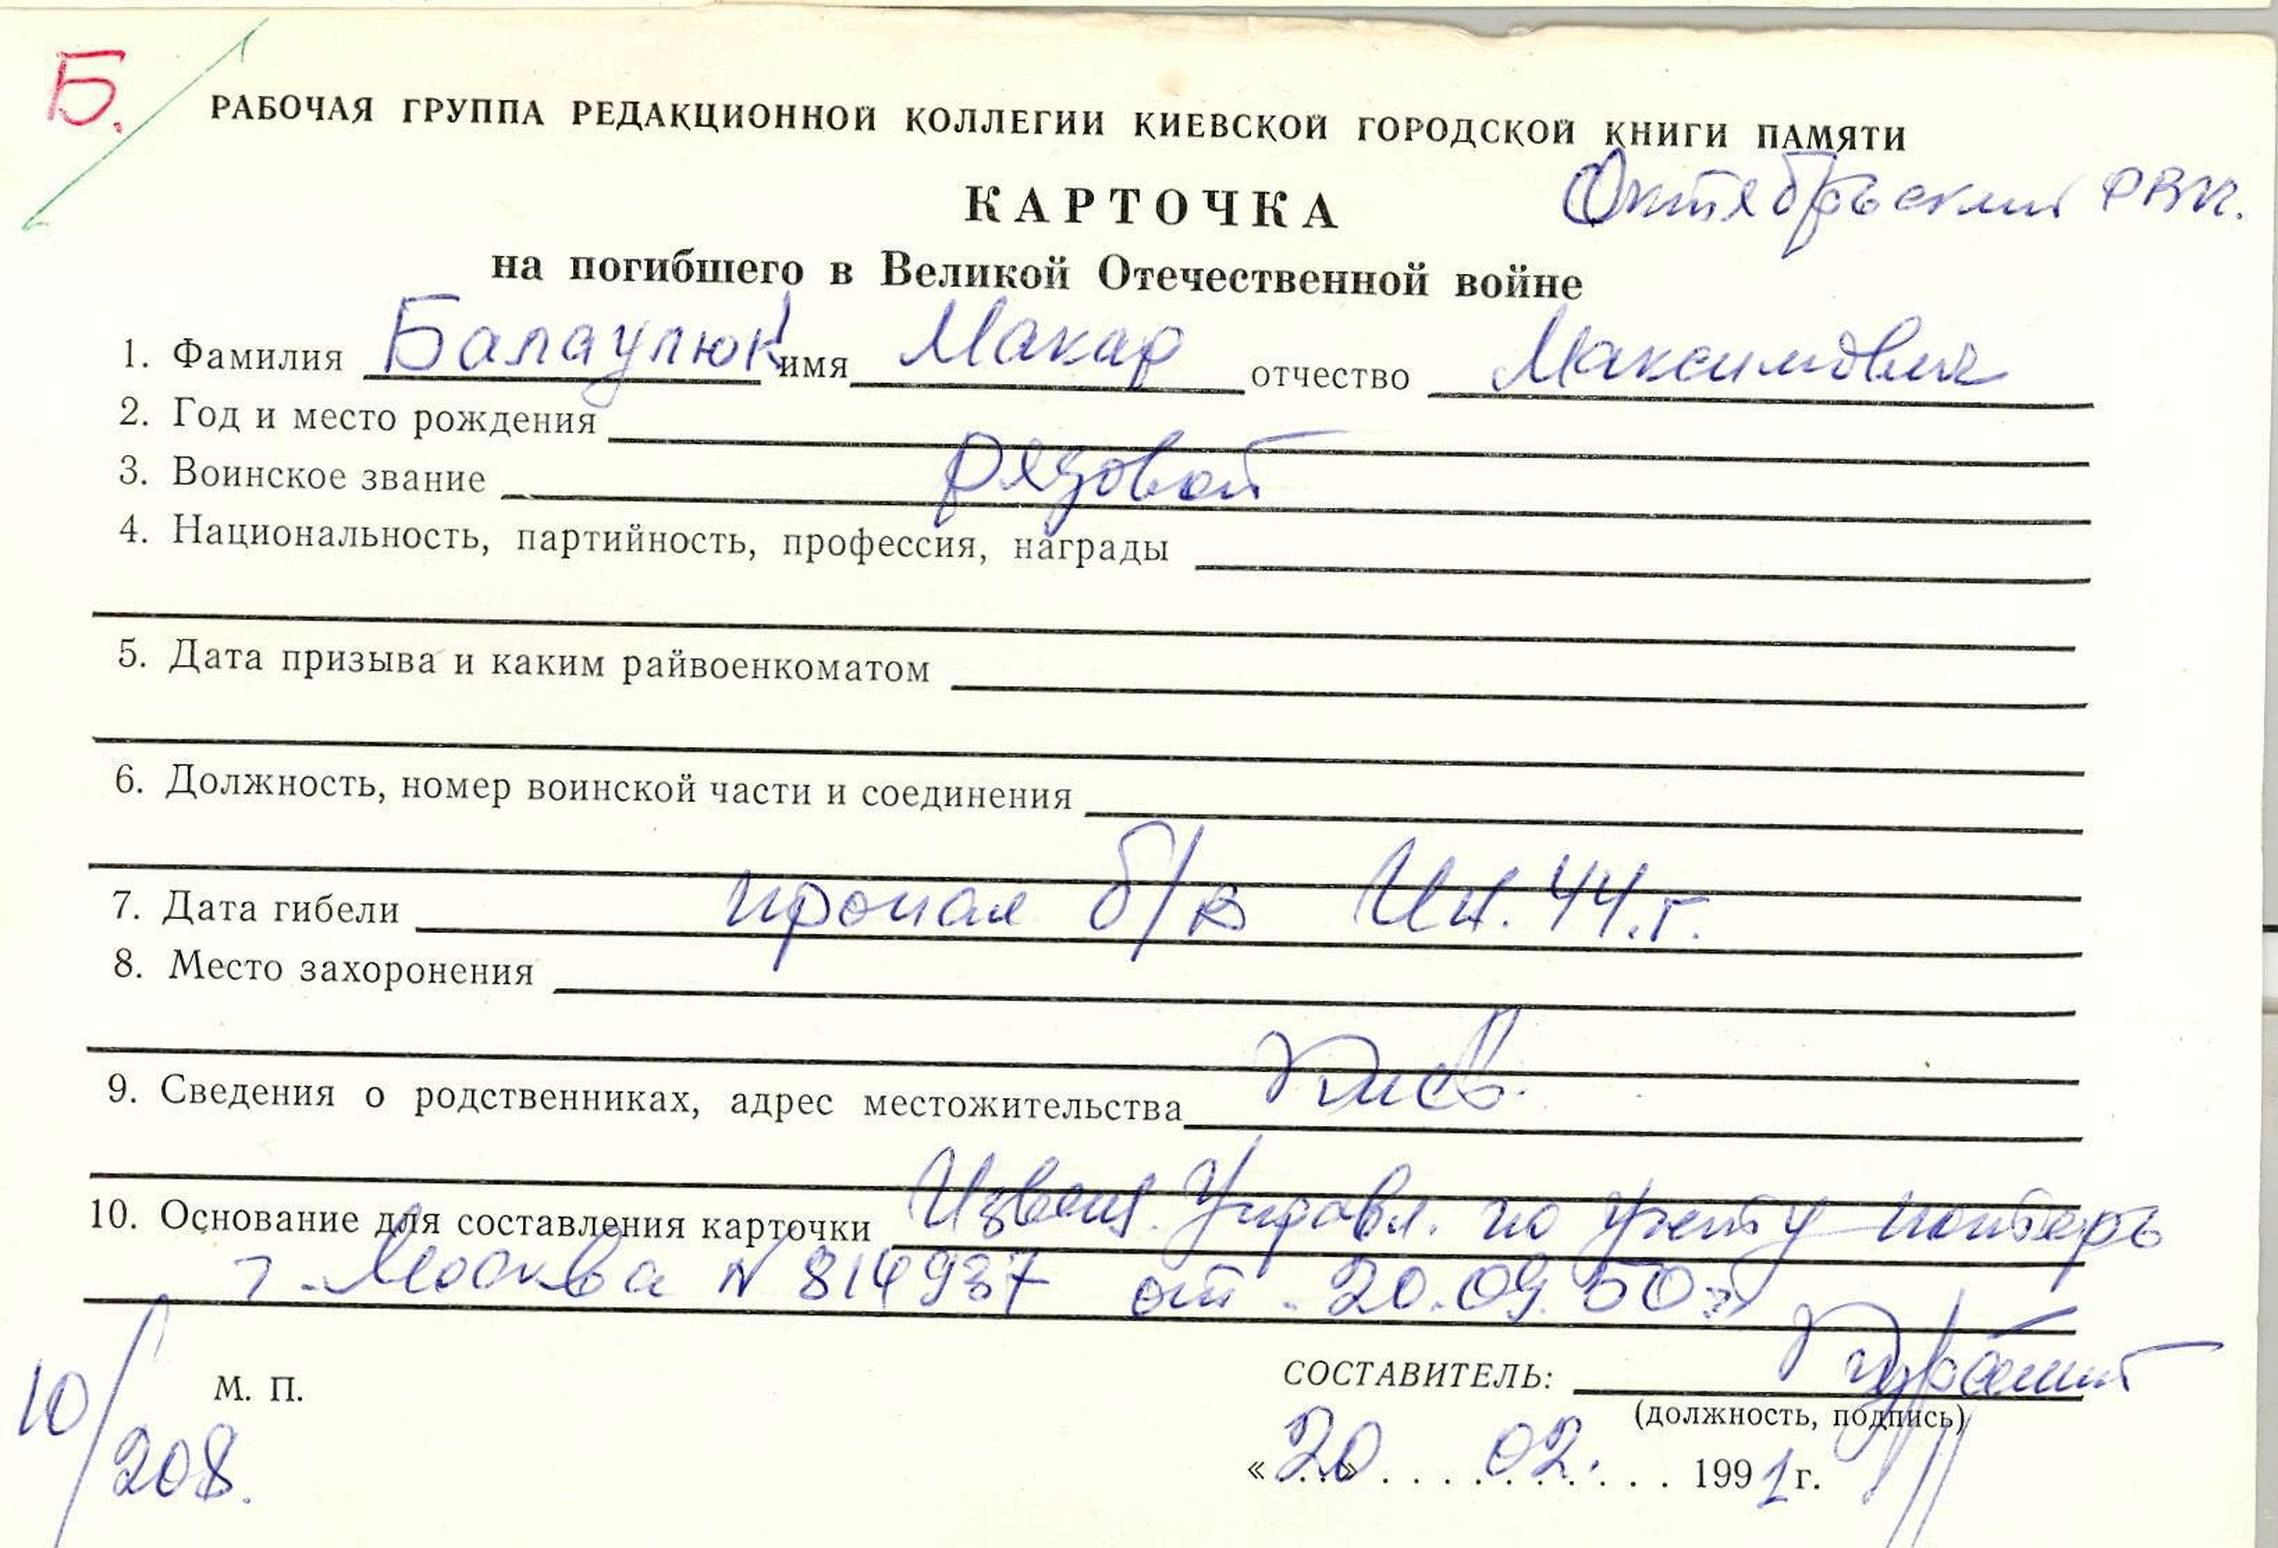 Б.
РАБОЧАЯ ГРУППА РЕДАКЦИОННОЙ КОЛЛЕГИИ КИЕВСКОЙ ГОРОДСКОЙ КНИГИ ПАМЯТИ
Октябрьский РВК.
КАРТОЧКА
на погибшего в Великой Отечественной войне
1. Фамилия Балаулюк имя Макар отчество Максимович
2. Год и место рождения
3. Воинское звание рядовой
4. Национальность, партийность, профессия, награды
5. Дата призыва и каким райвоенкоматом
6. Должность, номер воинской части и соединения
7. Дата гибели пропал б/в 44.г.
8. Место захоронения
9. Сведения о родственниках, адрес местожительства Киев.
10. Основание для составления карточки Извещ. Управл. по учету потерь
г. Москва N 814937 от 20.09.50г
10/208.
М. П.
СОСТАВИТЕЛЬ:
(должность, подпись)
«20» 02. 1991 г.